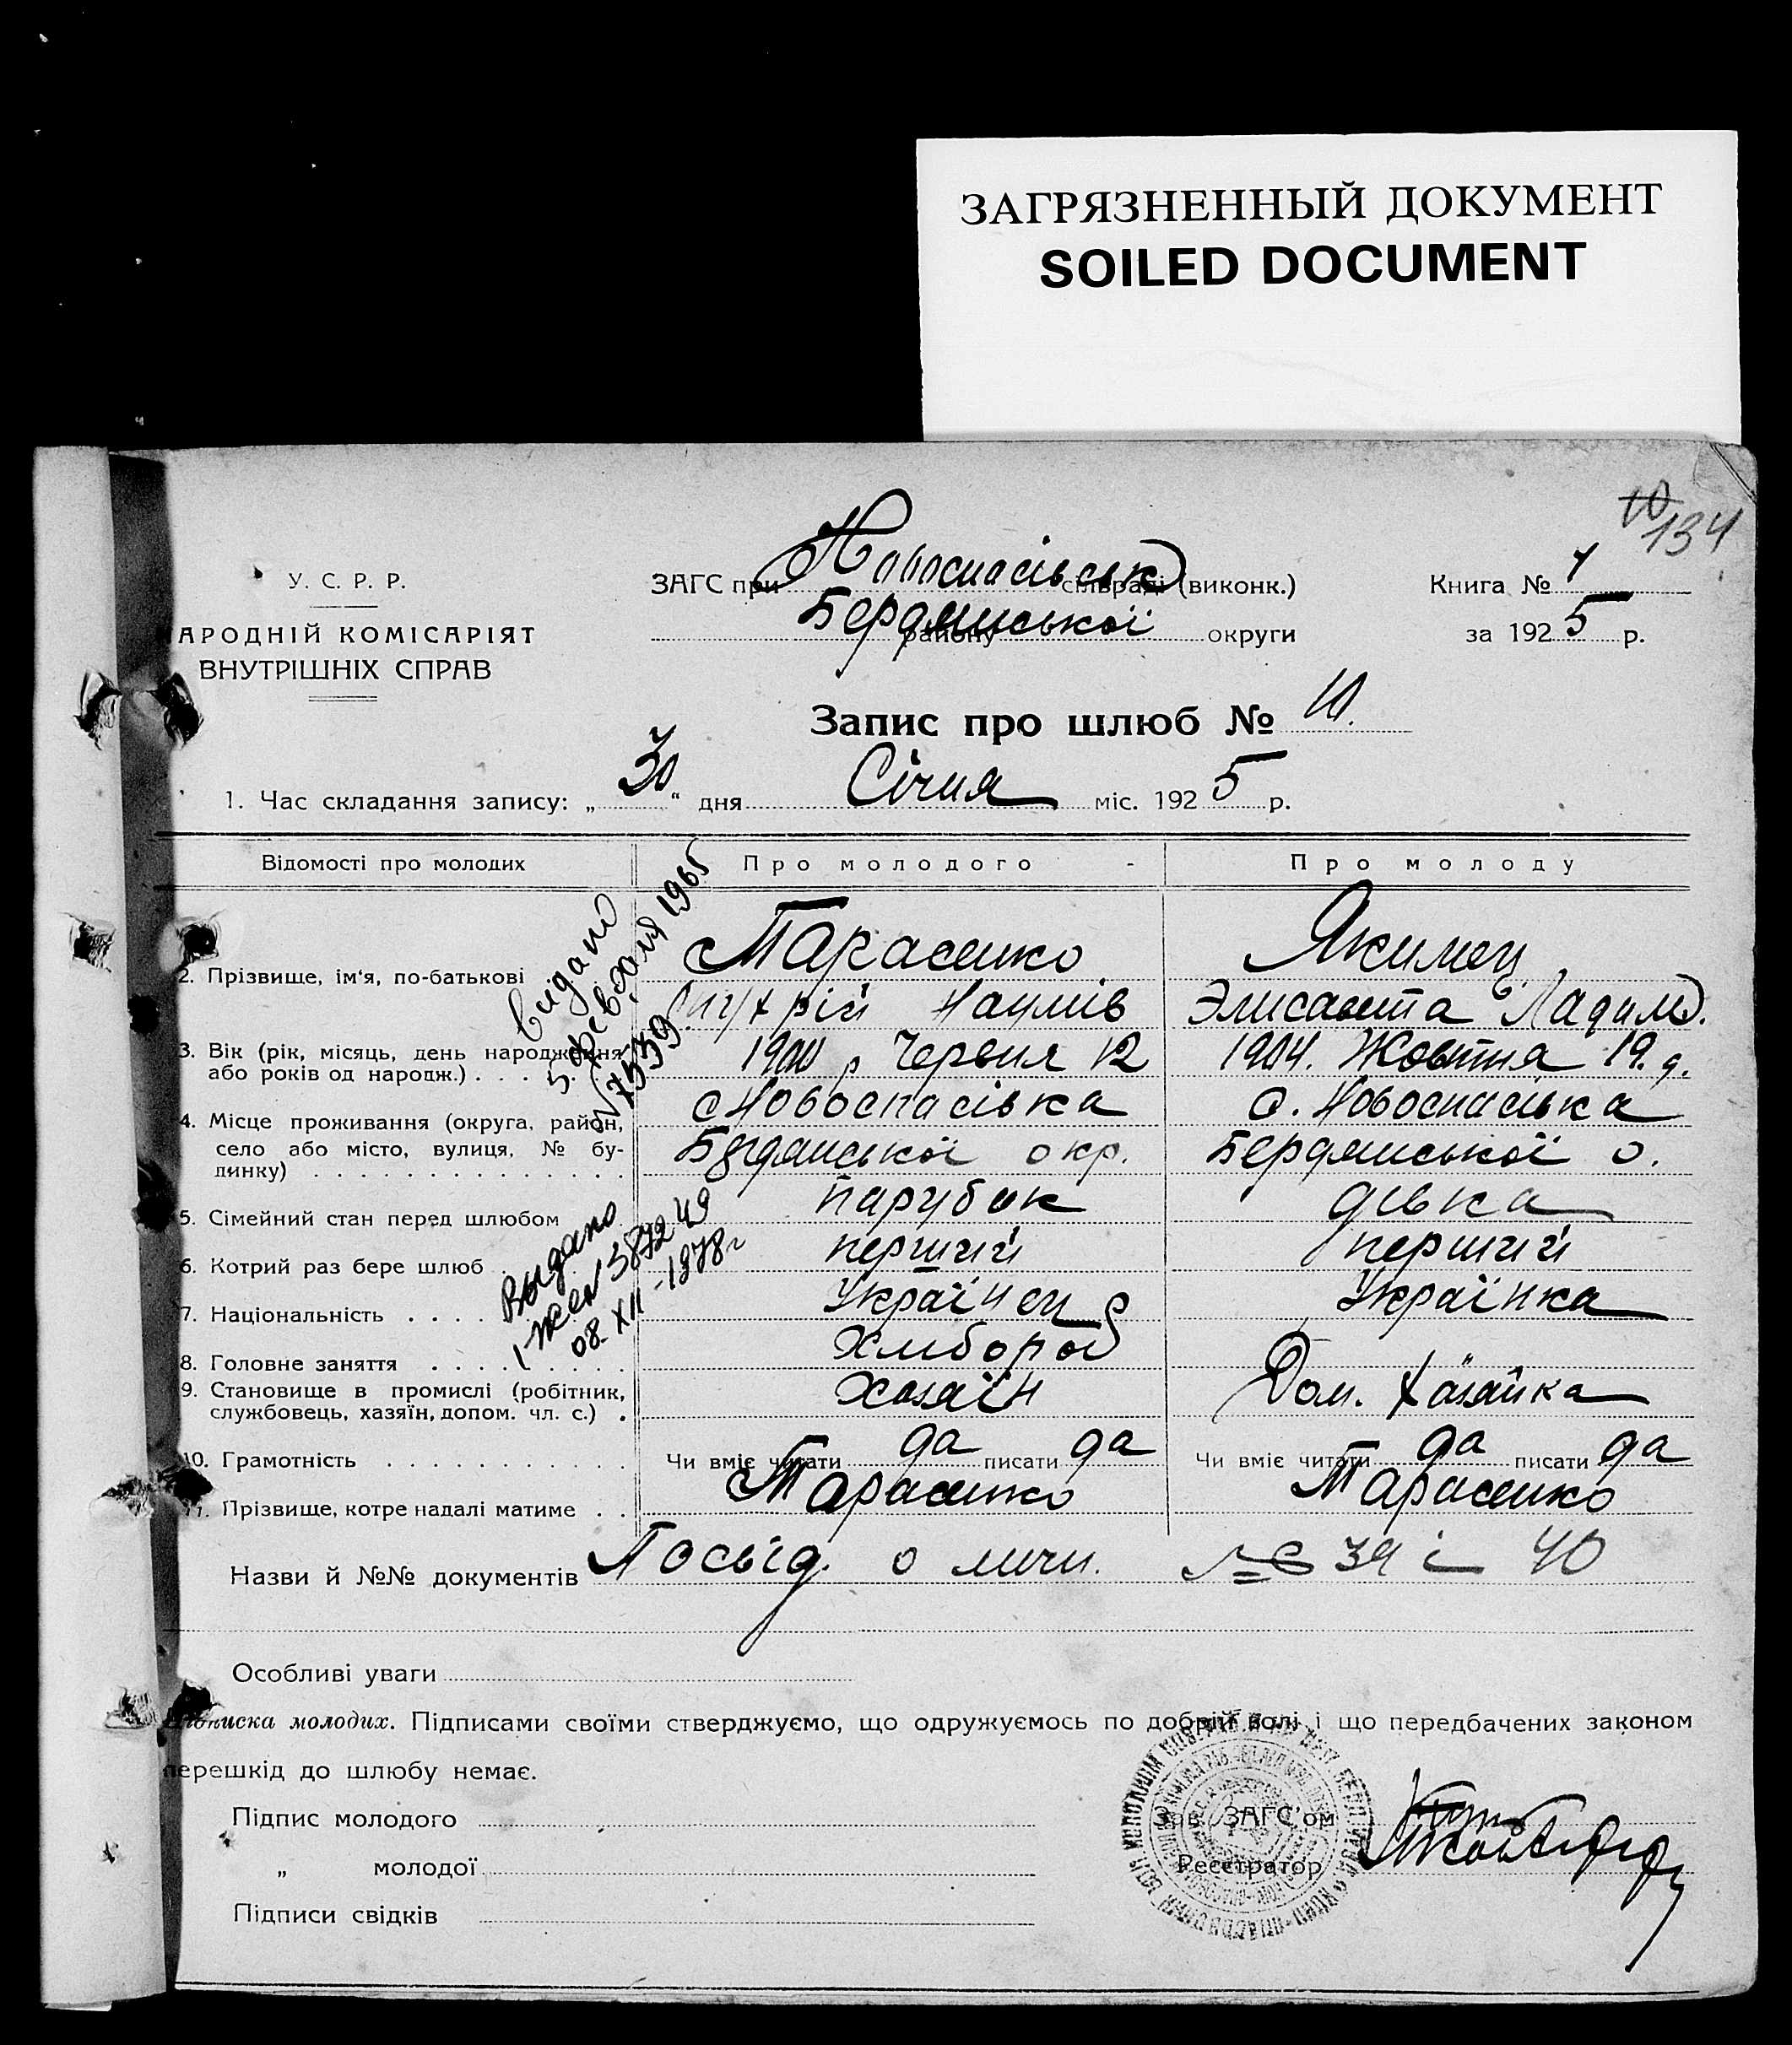 ЗАГРЯЗНЕННЫЙ ДОКУМЕНТ
SOILED DOCUMENT
10
134
У. С. Р. Р.
АРОДНІЙ КОМІСАРІЯТ
ВНУТРІШНІХ СПРАВ
ЗАГС при Новоспасівськ сільраді (виконк.)
Бердянської району округи
Книга № 1
за 1925 р.
Запис про шлюб № 10.
1. Час складання запису: „30“ дня Січня міс. 1925 р.
Відомості про молодих Про молодого Про молоду
2. Прізвище, ім‘я, по-батькові Тарасенко Якимец
Наумів Элисавета
3. Вік (рік, місяць, день народження або років од нарож.) 1900 р Червня 12 1904. Жовтня 19. д.
4. Місце проживання (округа, район, село або місто, вулиця, № будинку) с Новоспасівка с. Новоспасівка
Бердянської окр. Бердянської о.
5. Сімейний стан перед шлюбом парубок дівка
6. Котрий раз бере шлюб перший перший
7. Національність Українец Українка
8. Головне заняття Хлибороб
9. Становище в промислі (робітник, службовець, хазяїн, допом. чл. с.) Хазяїн Дом. Хазяйка
10. Грамотність Чи вміє читати да писати да Чи вміє читати да писати да
11. Прізвище, котре надалі матиме Тарасенко Тарасенко
видано
5. февраля 1965
N 7539
Выдано
08. XII - 1978 г
Назви й №№ документів Посвід. о личн. № 39 і 40
Особливі уваги
Підписка молодих. Підписами своїми стверджуємо, що одружуємось по добрій волі і що передбачених законом
перешкід до шлюбу немає.
Підпис молодого
„ молодої
Підписи свідків
Зав. ЗАГС'ом
Реєстратор